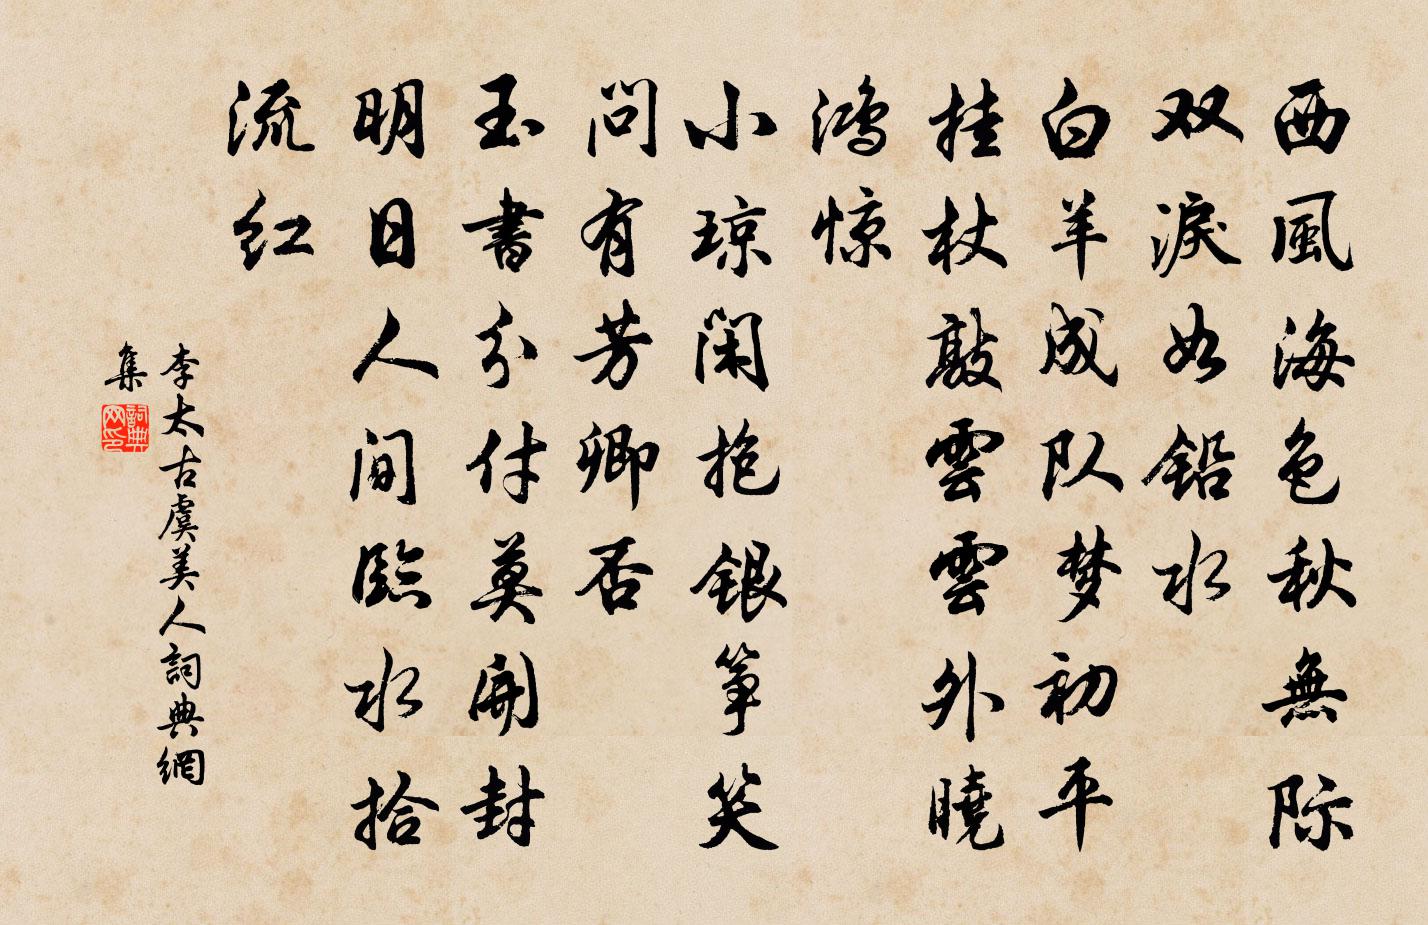 西風海色秋無际
双淚如铅水
白羊成队梦初平
挂杖敲雲雲外曉
鸿惊
小琼闲抱银筝笑
问有芳卿否
玉書分付莫開封
明日人间臨水拾
流红
李太古虞美人詞典網
集
詞典网印